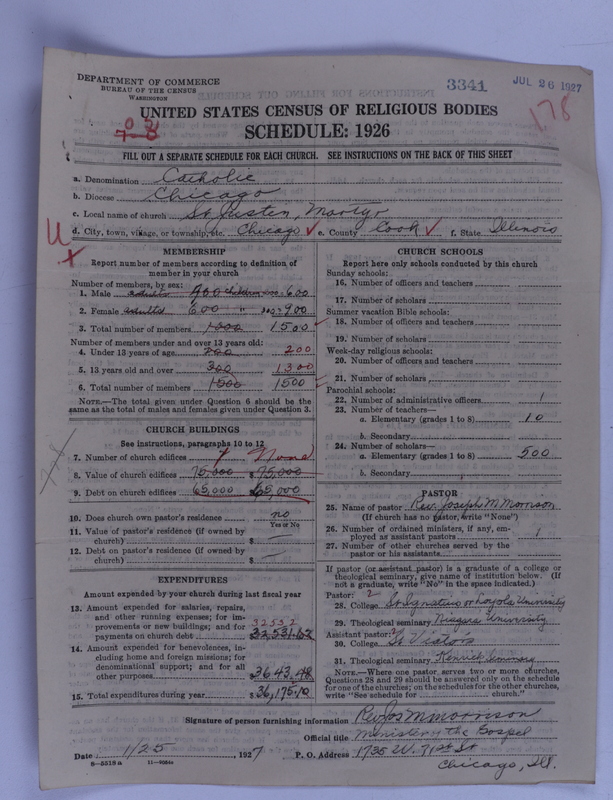 DEPARTMENT OF COMMERCE
BUREAU OF THE CENSUS
WASHINGTON
3341
JUL 26 1927
178
UNITED STATES CENSUS OF RELIGIOUS BODIES
SCHEDULE: 1926
FILL OUT A SEPARATE SCHEDULE FOR EACH CHURCH. SEE INSTRUCTIONS ON THE BACK OF THIS SHEET
a. Denomination Catholic
b. Diocese Chicago
c. Local name of church St Justin, Martyr
d. City, town, village, or township, etc. Chicago ✓ e. County Cook ✓ f. State Illinois
U
x
MEMBERSHIP
Report number of members according to definition of
member in your church
Number of members, by sex:
1. Male adults 400 children 600
2. Female adults 600 " 900
3. Total number of members 1000 1500
Number of members under and over 13 years old:
4. Under 13 years of age 200 200
5. 13 years old and over 300 1300
6. Total number of members 1500 1500
NOTE.—The total given under Question 6 should be the
same as the total of males and females given under Question 3.
CHURCH BUILDINGS
See instructions, paragraphs 10 to 12
7. Number of church edifices 1 None
8. Value of church edifices 75,000 $ 75,000
9. Debt on church edifices 65,000 $ 65,000
10. Does church own pastor's residence no
Yes or No
11. Value of pastor's residence (if owned by
church) $ —
12. Debt on pastor's residence (if owned by
church) $ —
EXPENDITURES
Amount expended by your church during last fiscal year
13. Amount expended for salaries, repairs,
and other running expenses; for im-
provements or new buildings; and for
payments on church debt 32532 32,531.62
14. Amount expended for benevolences, in-
cluding home and foreign missions; for
denominational support; and for all
other purposes $ 3643.48
15. Total expenditures during year $ 36,175.10
CHURCH SCHOOLS
Report here only schools conducted by this church
Sunday schools:
16. Number of officers and teachers
17. Number of scholars
Summer vacation Bible schools:
18. Number of officers and teachers
19. Number of scholars
Week-day religious schools:
20. Number of officers and teachers
21. Number of scholars
Parochial schools:
22. Number of administrative officers 1
23. Number of teachers—
a. Elementary (grades 1 to 8) 10
b. Secondary
24. Number of scholars—
a. Elementary (grades 1 to 8) 500
b. Secondary
PASTOR
25. Name of pastor Rev. Joseph M. Morrison
(If church has no pastor, write "None")
26. Number of ordained ministers, if any, em-
ployed as assistant pastors 1
27. Number of other churches served by the
pastor or his assistants
If pastor (or assistant pastor) is a graduate of a college or
theological seminary, give name of institution below. (If
not a graduate, write "No" in the space indicated.)
Pastor: 2
28. College St Ignatius or Loyola University
29. Theological seminary Niagara University
Assistant pastor: 2
30. College St Viators
31. Theological seminary Kenrick Seminary
NOTE.—Where one pastor serves two or more churches,
Questions 28 and 29 should be answered only on the schedule
for one of the churches; on the schedules for the other churches,
write "See schedule for church."
Signature of person furnishing information Rev Jos M Morrison
Official title Minister of the Gospel
Date 1/25, 1927 P. O. Address 1735 W. 71st St
Chicago, Ill.
8—5519 a 11—9054a